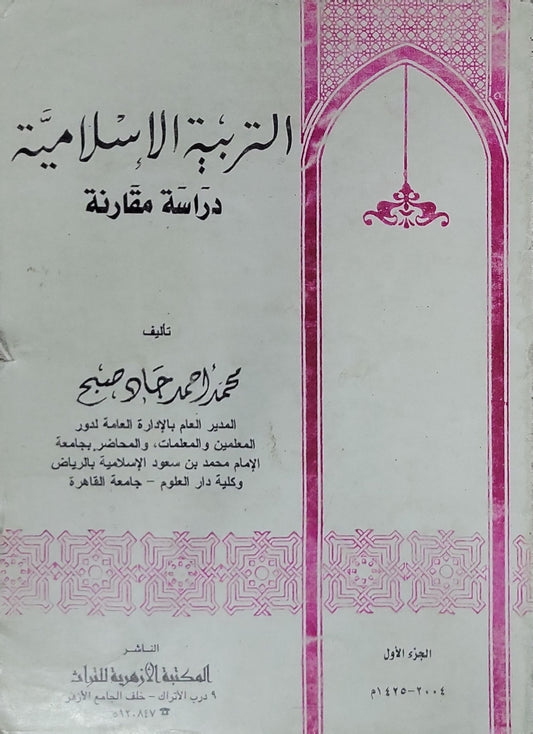 التربية الإسلاميَّة
دراسَة مقَارنة
تأليف
محمد أحمد جاد صبح
المدير العام بالإدارة العامة لدور
المعلمين والمعلمات، والمحاضر بجامعة
الإمام محمد بن سعود الإسلامية بالرياض
وكلية دار العلوم - جامعة القاهرة
الناشر
المكتبة الأزهرية للتراث
٩ درب الأتراك - خلف الجامع الأزهر
☎ ٥١٢٠٨٤٧
الجزء الأول
٢٠٠٤-١٤٢٥م